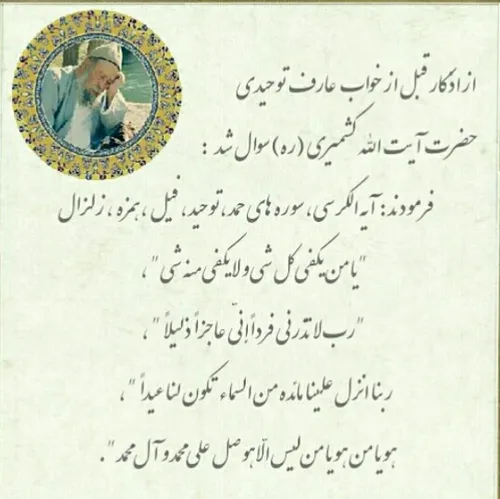 از اذکار قبل از خواب عارف توحیدی
حضرت آیت الله کشمیری (ره) سوال شد :
فرمودند: آیه الکرسی، سوره های حمد، توحید، فیل ، همزه ، زلزال
"یا من یکفی کل شی ولا یکفی منه شی" ،
"رب لا تدرنی فرداً إنّی عاجزاً ذلیلاً " ،
ربنا انزل علینا مائده من السماء تکون لنا عیداً " ،
هو یا من هو یا من لیس الّا هو صل علی محمد و آل محمد ".